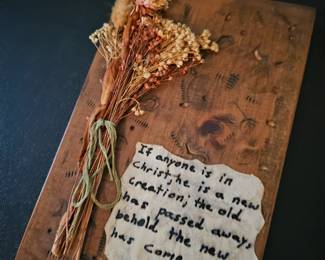 If anyone is in
Christ, he is a new
creation; the old
has passed away,
behold the new
has come